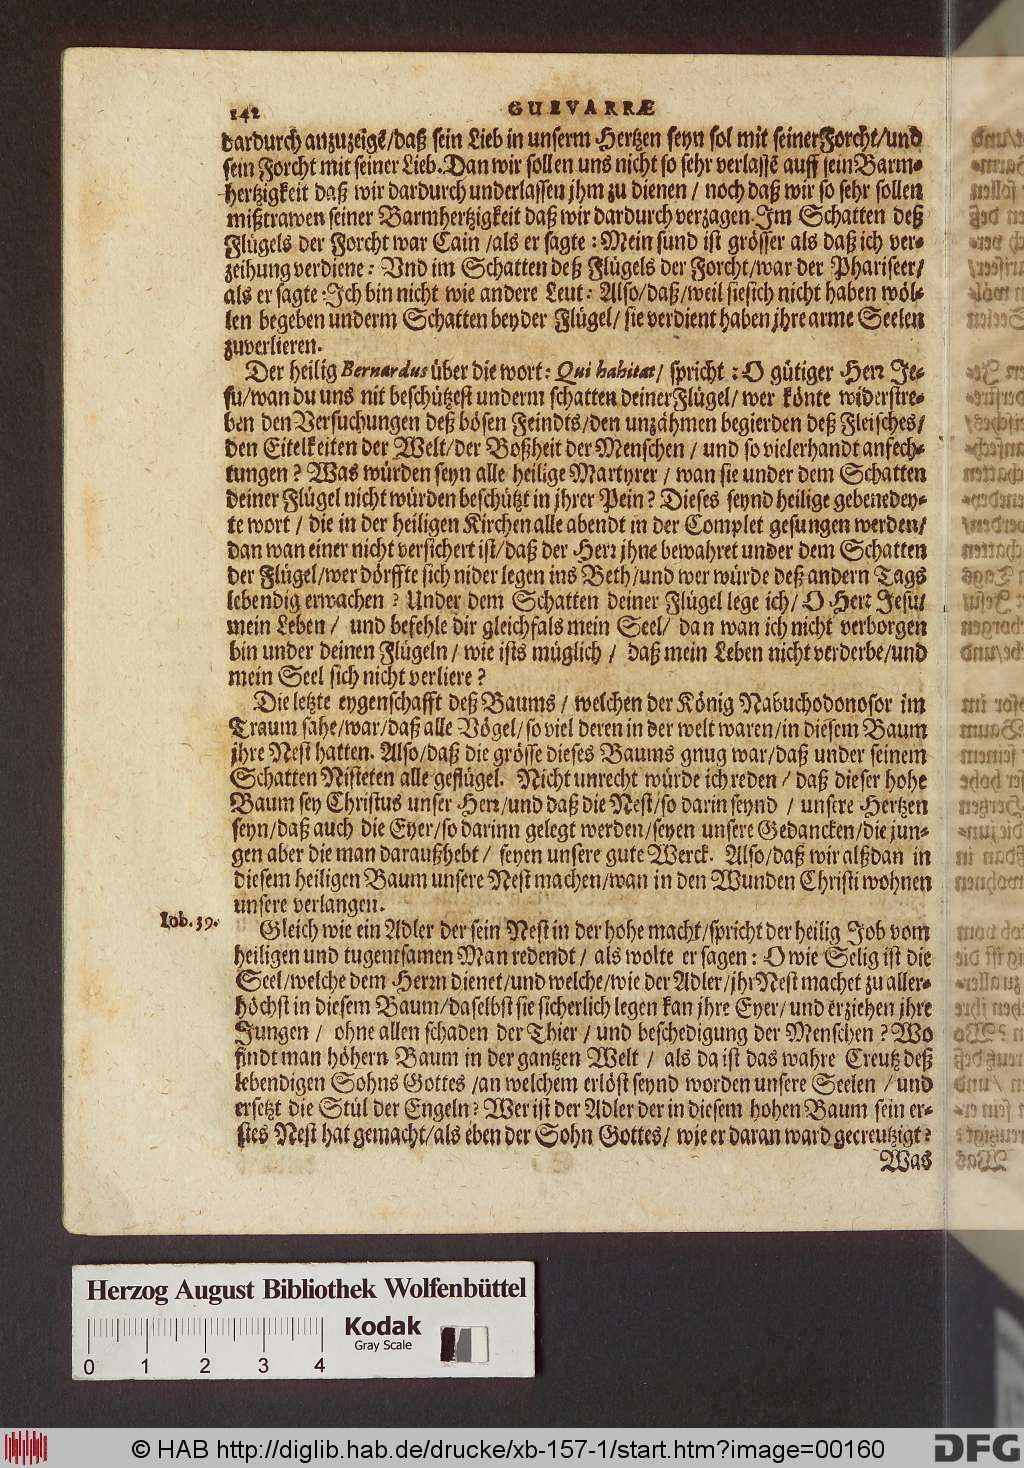 142
GUEVARRÆ
dardurch anzuzeigẽ/daß sein Lieb in unserm Hertzen seyn sol mit seiner Forcht/und
sein Forcht mit seiner Lieb. Dan wir sollen uns nicht so sehr verlassẽ auff sein Barm-
hertzigkeit daß wir dardurch underlassen jhm zu dienen / noch daß wir so sehr sollen
mißtrawen seiner Barmhertzigkeit daß wir dardurch verzagen. Im Schatten deß
Flügels der Forcht war Cain /als er sagte : Mein sund ist grösser als daß ich ver-
zeihung verdiene : Vnd im Schatten deß Flügels der Forcht/war der Phariseer/
als er sagte : Ich bin nicht wie andere Leut : Also/daß/weil sie sich nicht haben wöl-
len begeben underm Schatten beyder Flügel/ sie verdient haben jhre arme Seelen
zuverlieren.
Der heilig Bernardus über die wort : Qui habitat/ spricht : O gütiger Herr Je-
su/wan du uns nit beschützest underm schatten deiner Flügel/ wer könte widerstre-
ben den Versuchungen deß bösen Feindts/den unzähmen begierden deß Fleisches/
den Eitelkeiten der Welt/der Boßheit der Menschen / und so vielerhandt anfech-
tungen ? Was würden seyn alle heilige Martyrer / wan sie under dem Schatten
deiner Flügel nicht würden beschützt in jhrer Pein ? Dieses seynd heilige gebenedey-
te wort / die in der heiligen Kirchen alle abendt in der Complet gesungen werden/
dan wan einer nicht versichert ist/daß der Herr jhne bewahret under dem Schatten
der Flügel/wer dörffte sich nider legen ins Beth/und wer würde deß andern Tags
lebendig erwachen ? Under dem Schatten deiner Flügel lege ich/ O Herr Jesu/
mein Leben / und befehle dir gleichfals mein Seel/ dan wan ich nicht verborgen
bin under deinen Flügeln / wie ists müglich / daß mein Leben nicht verderbe/und
mein Seel sich nicht verliere ?
Die letzte eygenschafft deß Baums / welchen der König Nabuchodonosor im
Traum sahe/war/daß alle Vögel/so viel deren in der welt waren/in diesem Baum
jhre Nest hatten. Also/daß die grösse dieses Baums gnug war/daß under seinem
Schatten Nisteten alle geflügel. Nicht unrecht würde ich reden / daß dieser hohe
Baum sey Christus unser Herr/und daß die Nest/so darin seynd / unsere Hertzen
seyn/daß auch die Eyer/so darinn gelegt werden/seyen unsere Gedancken/die jun-
gen aber die man daraußhebt / seyen unsere gute Werck. Also/daß wir alßdan in
diesem heiligen Baum unsere Nest machen/wan in den Wunden Christi wohnen
unsere verlangen.
Iob. 39.
Gleich wie ein Adler der sein Nest in der hohe macht/spricht der heilig Job vom
heiligen und tugentsamen Man redendt / als wolte er sagen : O wie Selig ist die
Seel/welche dem Herrn dienet/und welche/wie der Adler/jhr Nest machet zu aller-
höchst in diesem Baum/daselbst sie sicherlich legen kan jhre Eyer/ und erziehen jhre
Jungen / ohne allen schaden der Thier / und beschedigung der Menschen ? Wo
findt man höhern Baum in der gantzen Welt / als da ist das wahre Creutz deß
lebendigen Sohns Gottes /an welchem erlöst seynd worden unsere Seelen / und
ersetzt die Stül der Engeln ? Wer ist der Adler der in diesem hohen Baum sein er-
stes Nest hat gemacht/als eben der Sohn Gottes/ wie er daran ward gecreutzigt ?
Was
Herzog August Bibliothek Wolfenbüttel
Kodak
Gray Scale
0 1 2 3 4
© HAB http://diglib.hab.de/drucke/xb-157-1/start.htm?image=00160
DFG